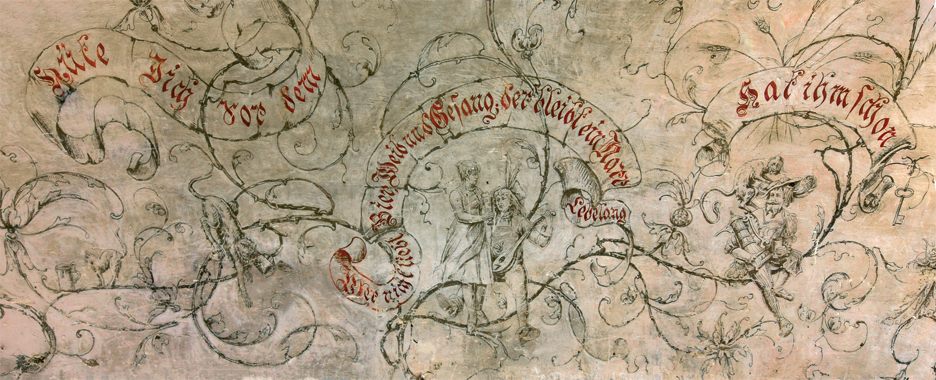 Hüte Dich vor dem
Wer nicht liebt Bier Weib und Gesang, der bleibt ein Narr
Lebelang
Hat ihm schon